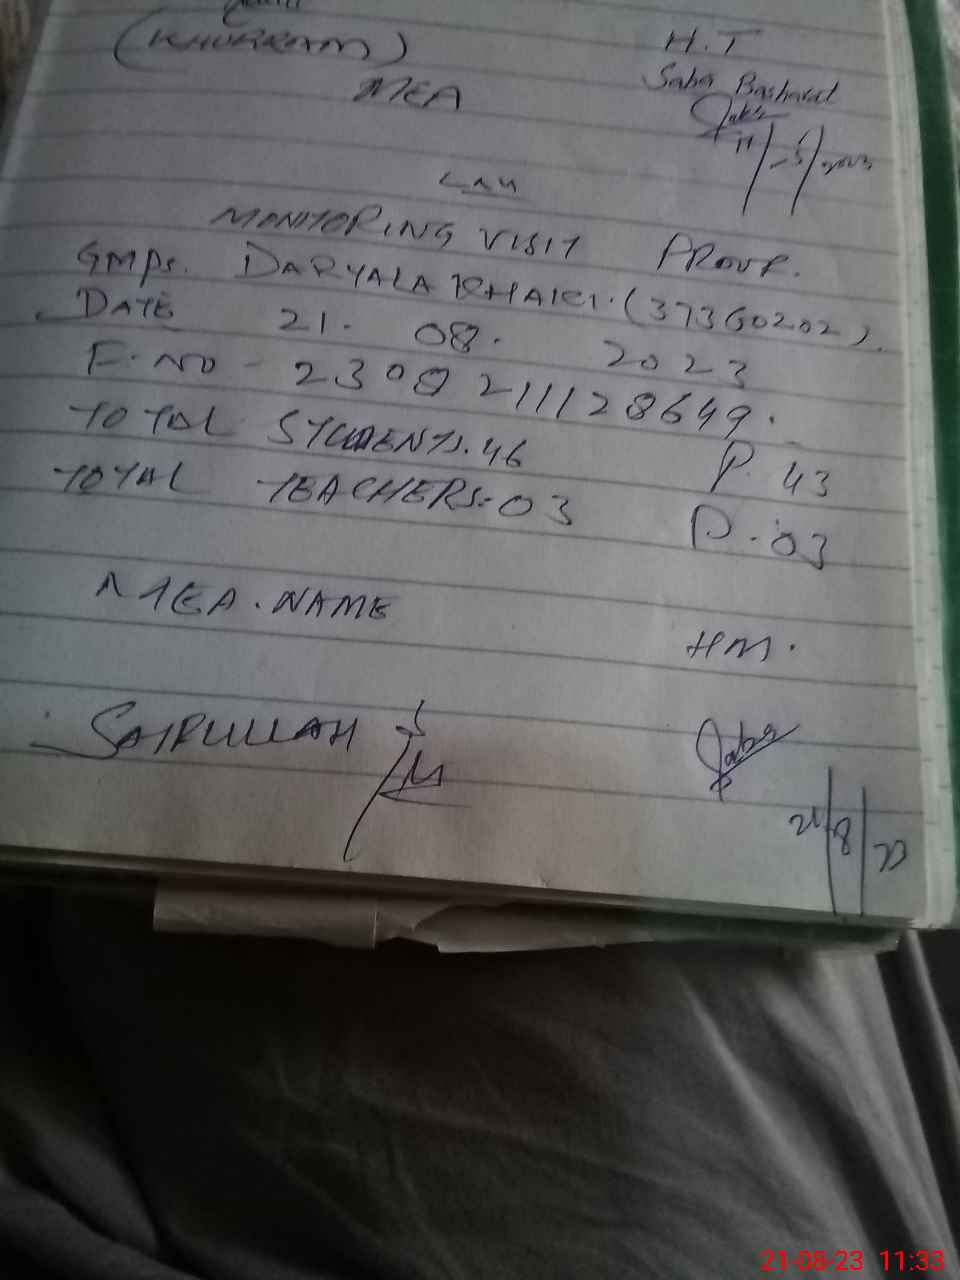 (KHURRAM)
MEA
H.T
Saba Basharat
11/-5/2023
MONITORING VISIT PROUF.
GMPS. DARYALA KHAKI. (37360202).
DATE 21. 08. 2023
F. NO - 2308211128649.
TOTAL STUDENTS. 46 P. 43
TOTAL TEACHERS: 03 P. 03
MEA. NAME
HM.
SAIFULLAH
Saba
21/8/23
21-08-23 11:33